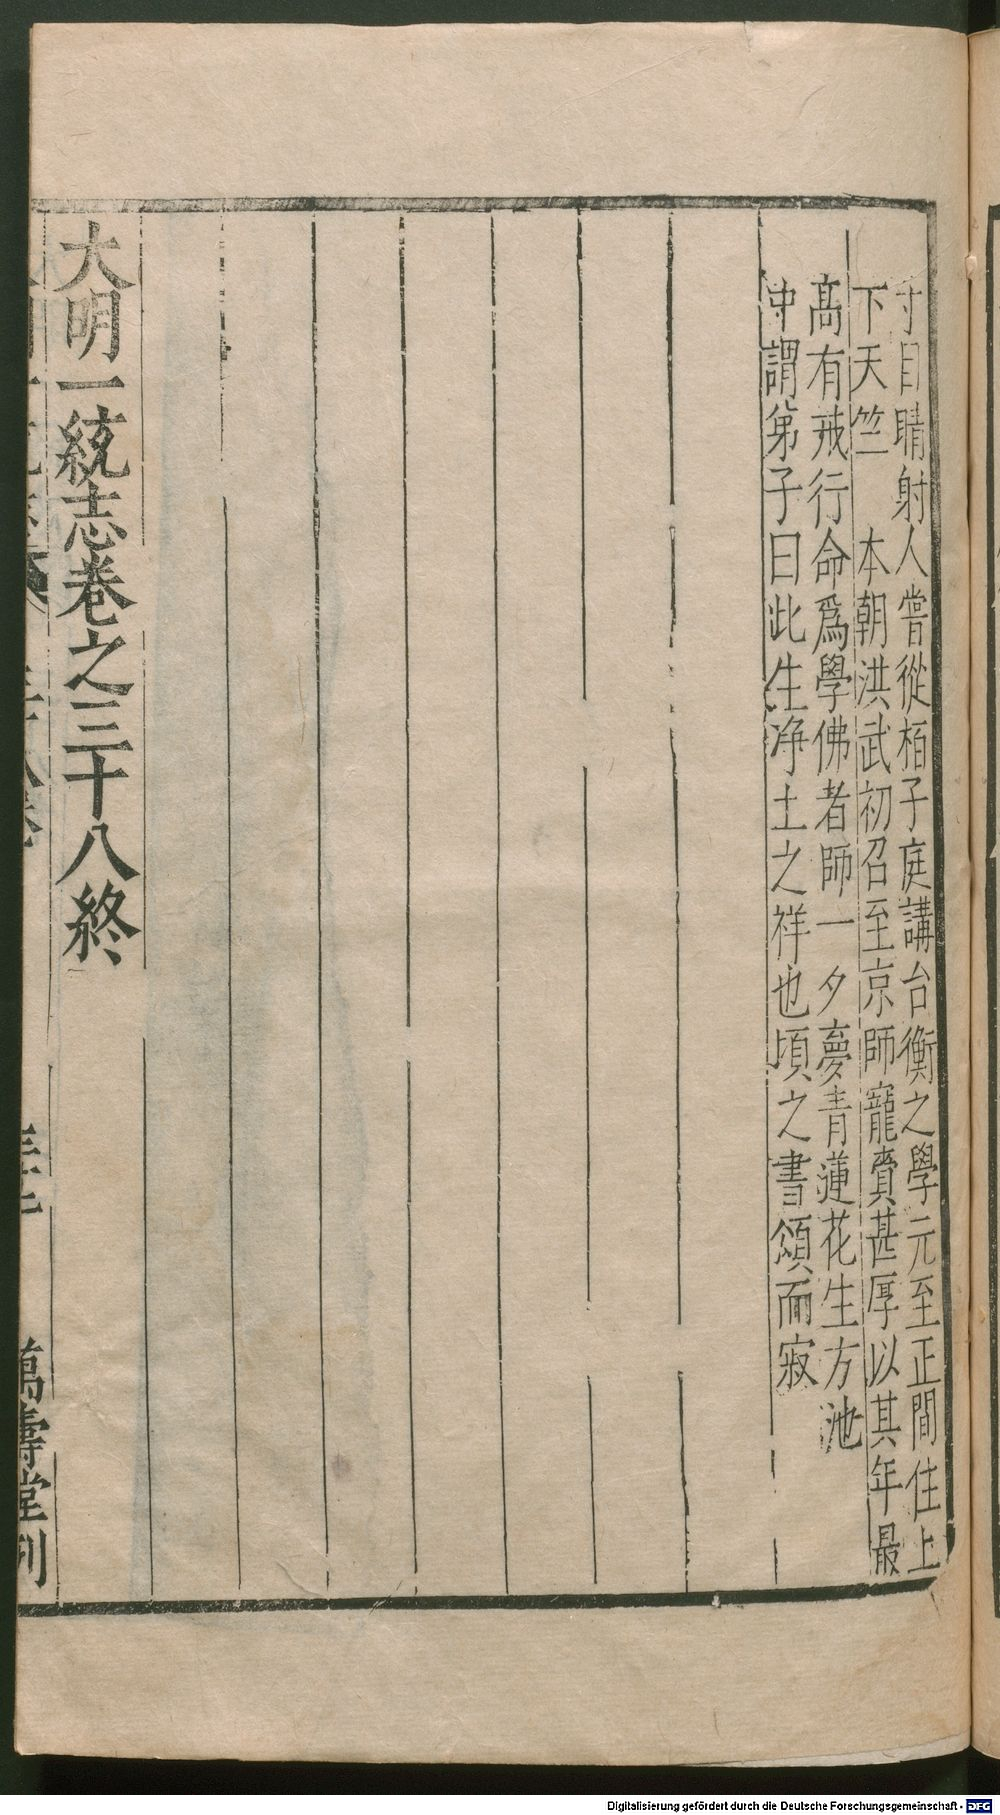 寸目睛射人嘗從栢子庭講台衡之學元至正間住上
下天竺　本朝洪武初召至京師寵賚甚厚以其年最
高有戒行命爲學佛者師一夕夢青蓮花生方池
中謂弟子曰此生淨土之祥也頃之書頌而寂
大明一統志卷之三十八終
萬壽堂刊
Digitalisierung gefördert durch die Deutsche Forschungsgemeinschaft - DFG